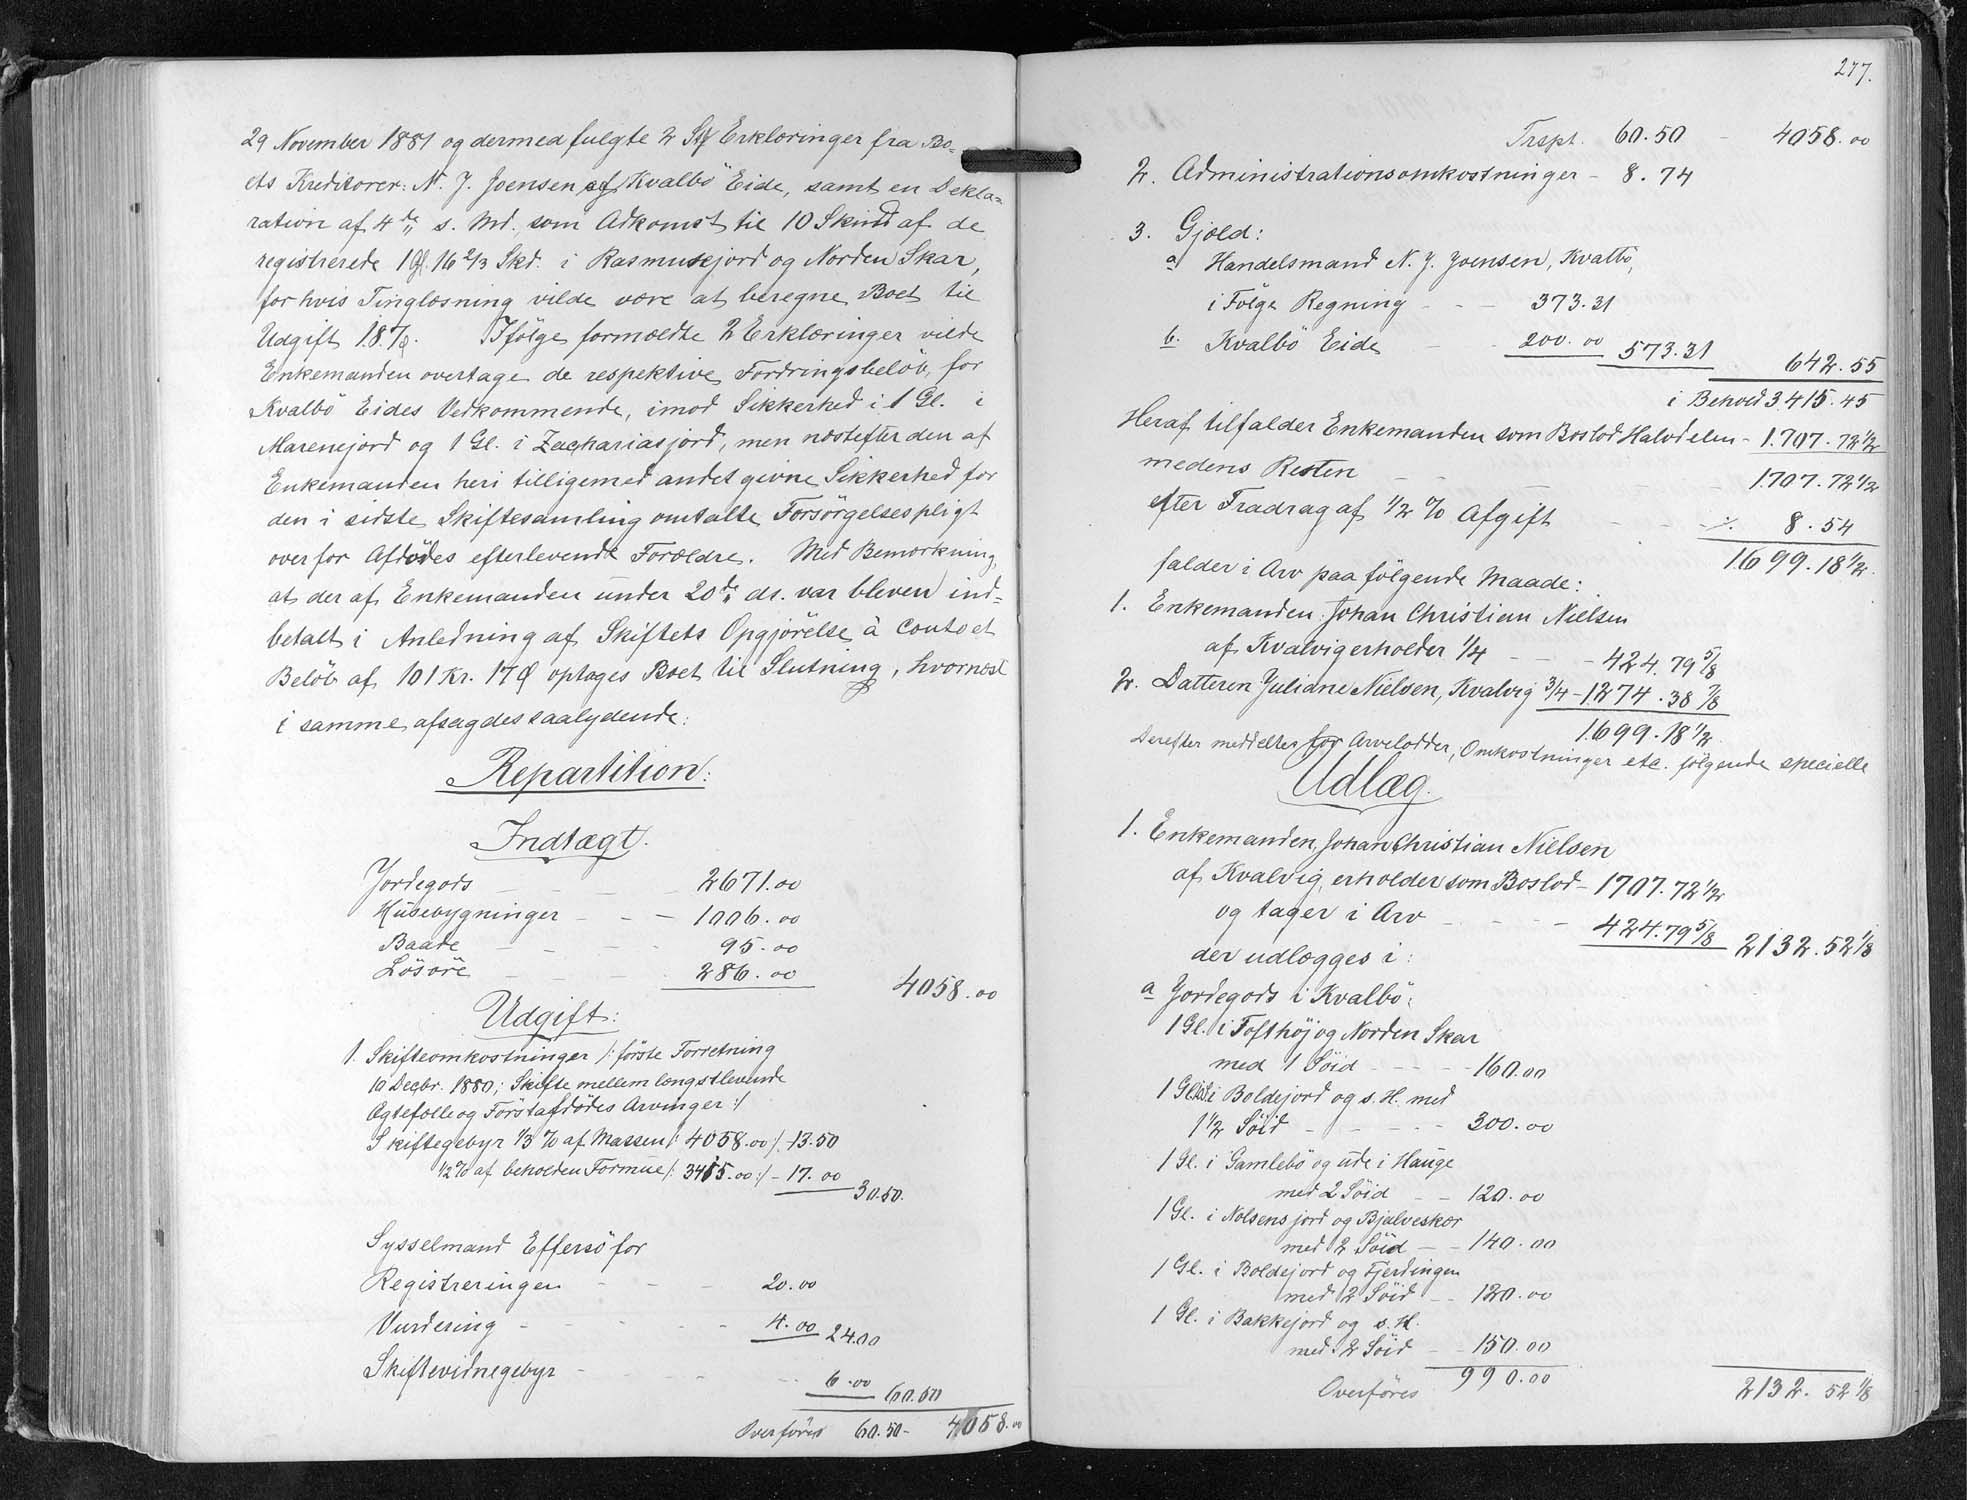 29 November 1881 og dermed fulgte 2 Stk Erklæringer fra Bo=
ets Kreditorer: N. J. Joensen og Kvalbö Eide, samt en Dekla=
ration af 4de s. Md. som Adkomst til 10 Skind af de
registrerede 1 Gl. 16 2/3 Skd. i Rasmusejord og Norden Skar,
for hvis Tinglæsning vilde være at beregne Boet til
Udgift Ifölge formældte 2 Erklæringer vilde
Enkemanden overtage de respektive Fordringsbelöb, for
Kvalbö Eides Vedkommende, imod Sikkerhed i 1 Gl. i
Marenejord og 1 Gl. i Zachariasjord, men næstefter den af
Enkemanden heri tilligemed andet givne Sikkerhed for
den i sidste Skiftesamling omtalte Forsörgelsespligt
overfor Afdödes efterlevende Forældre. Med Bemærkning,
at der af Enkemanden under 20de ds. var bleven ind=
betalt i Anledning af Skiftets Opgjörelse à conto et
Belöb af 101 Kr. 17 Ø optages Boet til Slutning, hvornæst
i samme afsagdes saalydende:
Repartition:
Indtægt.
Jordegods - - - 2671.00
Husebygninger - - - 1006.00
Baade - - - 95.00
Lösöre - - - 286.00 4058.00
Udgift:
1. Skifteomkostninger /: förste Forretning
10 Decbr. 1880; Skifte mellem længstlevende
Ægtefælle og Förstafdödes Arvinger :/
Skiftegebyr 1/3 % af Massen /: 4058.00 :/ - 13.50
1/2 % af beholden Formue /: 3415.00 :/ - 17.00 30.50.
Sysselmand Effersö for
Registreringen - - - 20.00
Vurdering - - - - 4.00 24.00
Skiftevidnegebyr - - - - 6.00 60.50
Overföres 60.50 - 4058.00
277.
Trspt. 60.50 - 4058.00
2. Administrationsomkostninger - 8.74
3. Gjæld:
a Handelsmand N. J. Joensen, Kvalbö,
i Fölge Regning - - - 373.31
b. Kvalbö Eide - - 200.00 573.31 642.55
i Behold 3415.45
Heraf tilfalder Enkemanden som Boslod Halvdelen - 1.707.72 1/2
medens Resten - - - - 1707.72 1/2
efter Fradrag af 1/2 % Afgift - - - ÷ 8.54
1699.18 1/2.
falder i Arv paa fölgende Maade:
1. Enkemanden: Johan Christian Nielsen
af Kvalvig erholder 1/4 - - - 424.79 5/8
2. Datteren Juliane Nielsen, Kvalvig 3/4 - 1274.38 7/8
1699.18 1/2
Derefter meddeltes for Arvelodder, Omkostninger etc. fölgende specielle
Udlæg.
1. Enkemanden, Johan Christian Nielsen
af Kvalvig, erholder som Boslod - 1707.72 1/2
og tager i Arv - - - - 424.79 5/8 2132.52 1/8
der udlægges i:
a Jordegods i Kvalbö:
1 Gl. i Tofthöj og Norden Skar
med 1 Söid - - - - 160.00
1 Gl. i Boldejord og s. H. med
1 1/2 Söid - - - - - 300.00
1 Gl. i Gamlebö og ude i Hauge
med 2 Söid - - 120.00
1 Gl. i Nolsens jord og Bjalveskær
med 2 Söid - - 140.00
1 Gl. i Boldejord og Fjerdingen
med 2 Söid - - 120.00
1 Gl. i Bakkejord og s. H.
med 2 Söid - - 150.00
Overföres 990.00 2132.52 1/8